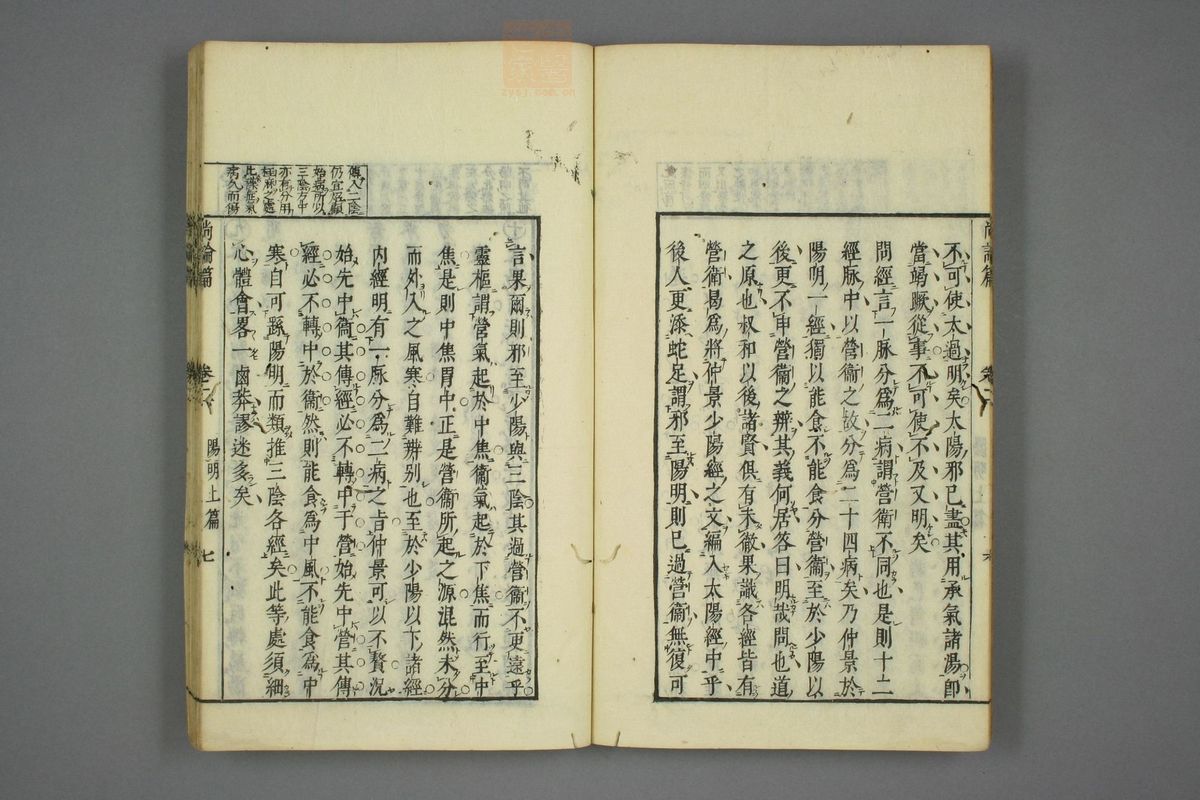 不可使太過明矣太陽邪已盡其用承氣諸湯即
當竭蹶從事不可使不及又明矣
問經言一脉分爲二病謂營衛不同也是則十二
經脉中以營衛之故分爲二十四病矣乃仲景於
陽明一經猶以能食不能食分營衛至於少陽以
後更不申營衛之辨其義何居答曰明哉問也道
之原也叔和以後諸賢俱有未徹果識各經皆有
營衛曷爲將仲景少陽經之文編入太陽經中乎
後人更添蛇足謂邪至陽明則已過營衛無復可
言果爾則邪至少陽與三陰其過營衛不更遠乎
靈樞謂營氣起於中焦衛氣起於下焦而行至中
焦是則中焦胃中正是營衛所起之源混然未分
而外入之風寒自難辨别也至於少陽以下諸經
内經明有一脉分爲二病之旨仲景可以不贅況
始先中衛其傳經必不轉中于營始先中營其傳
經必不轉中於衛然則能食爲中風不能食爲中
寒自可踨陽明而類推三陰各經矣此等處須細
心體會畧一鹵莽謬迷多矣
傳入三陰
仍宜
始病所以
三陰方中
亦有分用
病久而傷
尚論篇
卷二
陽明上篇
七
zysj.com.cn